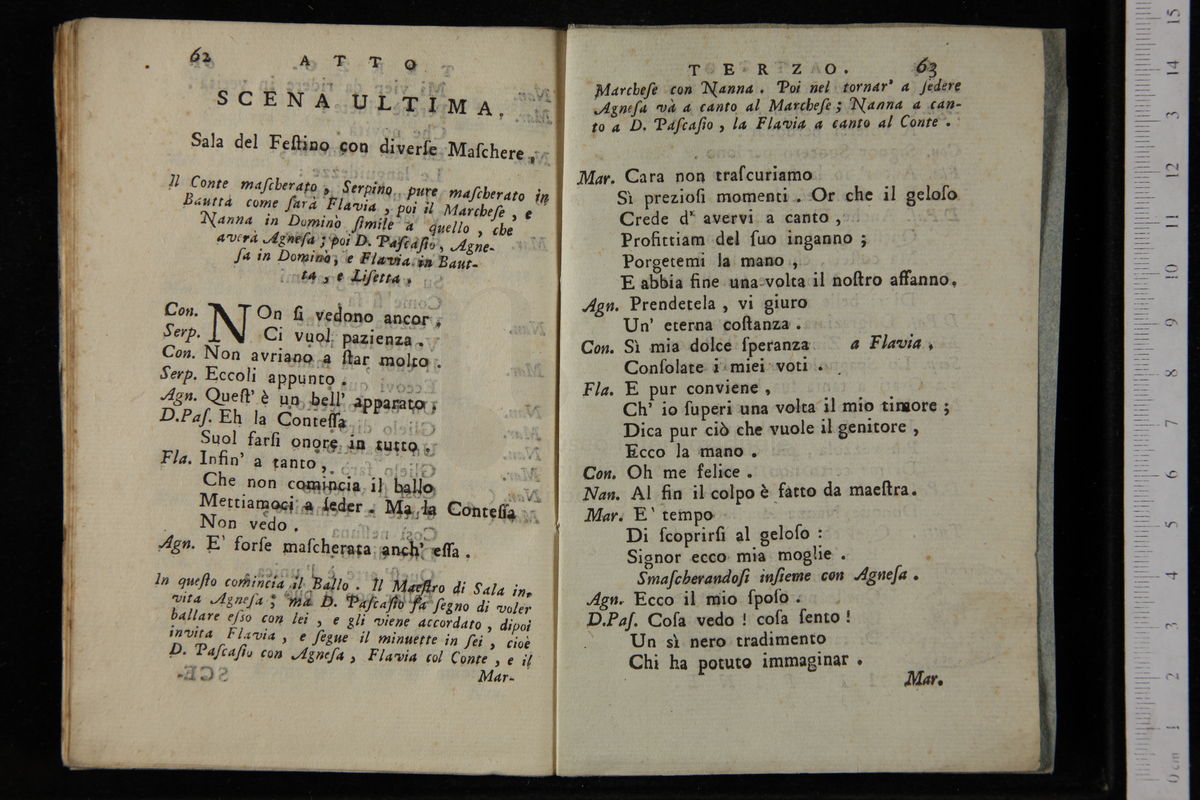 62 ATTO
SCENA ULTIMA.
Sala del Feſtino con diverſe Maſchere.
Il Conte maſcherato, Serpino pure maſcherato in
Bautta come ſarà Flavia, poi il Marcheſe, e
Nanna in Dominò ſimile a quello, che
averà Agneſa; poi D. Paſcaſio, Agne-
ſa in Dominò, e Flavia in Baut-
ta, e Liſetta.
Con. NOn ſi vedono ancor.
Serp. Ci vuol pazienza.
Con. Non avriano a ſtar molto.
Serp. Eccoli appunto.
Agn. Queſt' è un bell' apparato.
D.Paſ. Eh la Conteſſa
Suol farſi onore in tutto.
Fla. Infin' a tanto,
Che non comincia il ballo
Mettiamoci a ſeder. Ma la Conteſſa
Non vedo.
Agn. E' forſe maſcherata anch' eſſa.
In queſto comincia il Ballo. Il Maeſtro di Sala in-
vita Agneſa; ma D. Paſcaſio fa ſegno di voler
ballare eſſo con lei, e gli viene accordato, dipoi
invita Flavia, e ſegue il minuette in ſei, cioè
D. Paſcaſio con Agneſa, Flavia col Conte, e il
Mar-
TERZO. 63
Marcheſe con Nanna. Poi nel tornar' a ſedere
Agneſa và a canto al Marcheſe; Nanna a can-
to a D. Paſcaſio, la Flavia a canto al Conte.
Mar. Cara non traſcuriamo
Sì prezioſi momenti. Or che il geloſo
Crede d' avervi a canto,
Profittiam del ſuo inganno;
Porgetemi la mano,
E abbia fine una volta il noſtro affanno.
Agn. Prendetela, vi giuro
Un' eterna coſtanza.
Con. Sì mia dolce ſperanza a Flavia.
Conſolate i miei voti.
Fla. E pur conviene,
Ch' io ſuperi una volta il mio timore;
Dica pur ciò che vuole il genitore,
Ecco la mano.
Con. Oh me felice.
Nan. Al fin il colpo è fatto da maeſtra.
Mar. E' tempo
Di ſcoprirſi al geloſo:
Signor ecco mia moglie.
Smaſcherandoſi inſieme con Agneſa.
Agn. Ecco il mio ſpoſo.
D.Paſ. Coſa vedo! coſa ſento!
Un sì nero tradimento
Chi ha potuto immaginar.
Mar.
0 cm 1 2 3 4 5 6 7 8 9 10 11 12 13 14 15